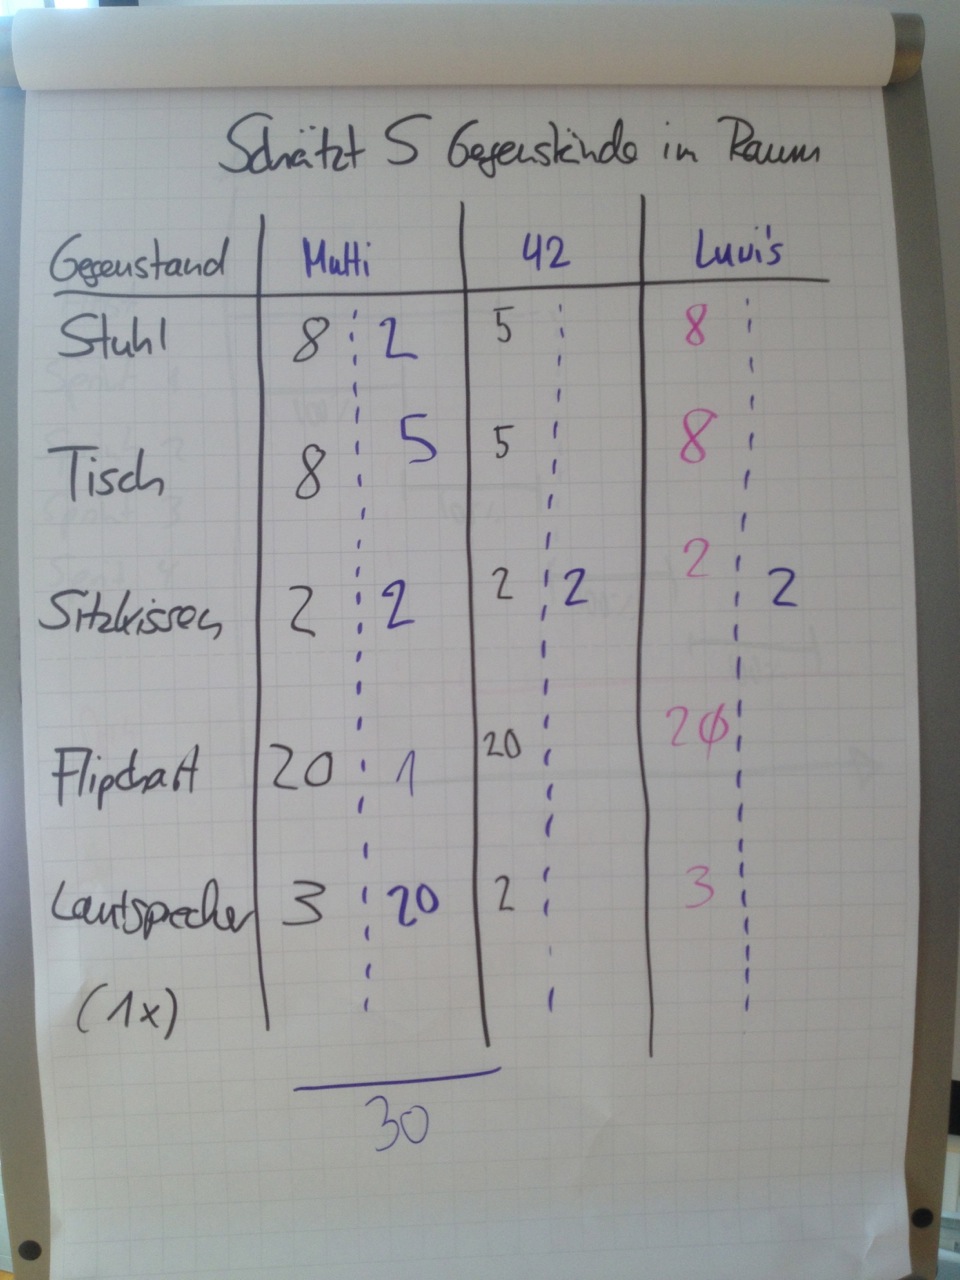 Schätzt 5 Gegenstände in Raum
Gegenstand Mutti 42 Luvi's
Stuhl 8 2 5 8
Tisch 8 5 5 8
Sitzkissen 2 2 2 2 2 2
Flipchart 20 1 20 20
Lautsprecher 3 20 2 3
(1x)
30